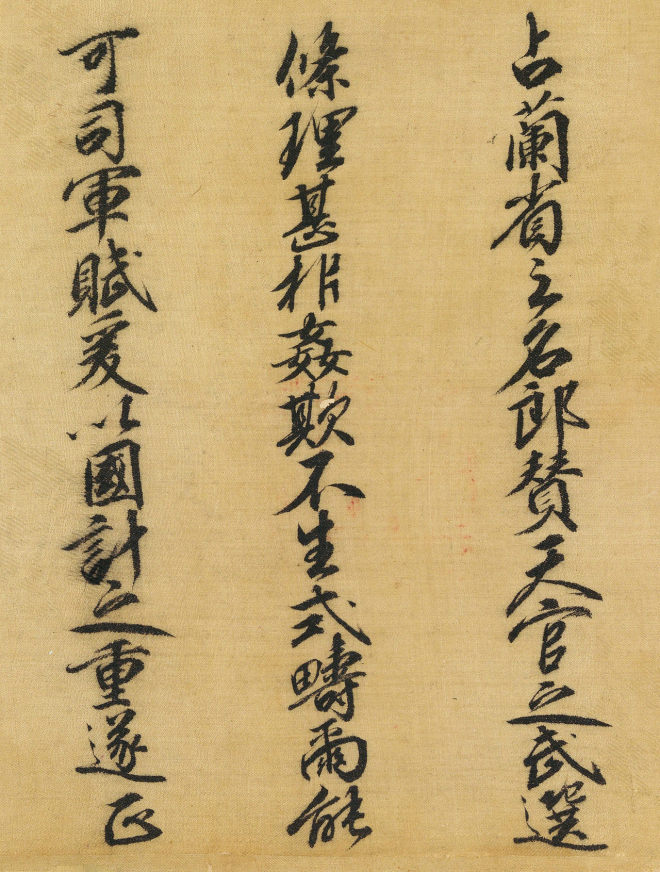 占蘭省之名郎賛天官之武選
條理甚析姦欺不生式疇爾能
可司軍賦爰以國計之重遂正